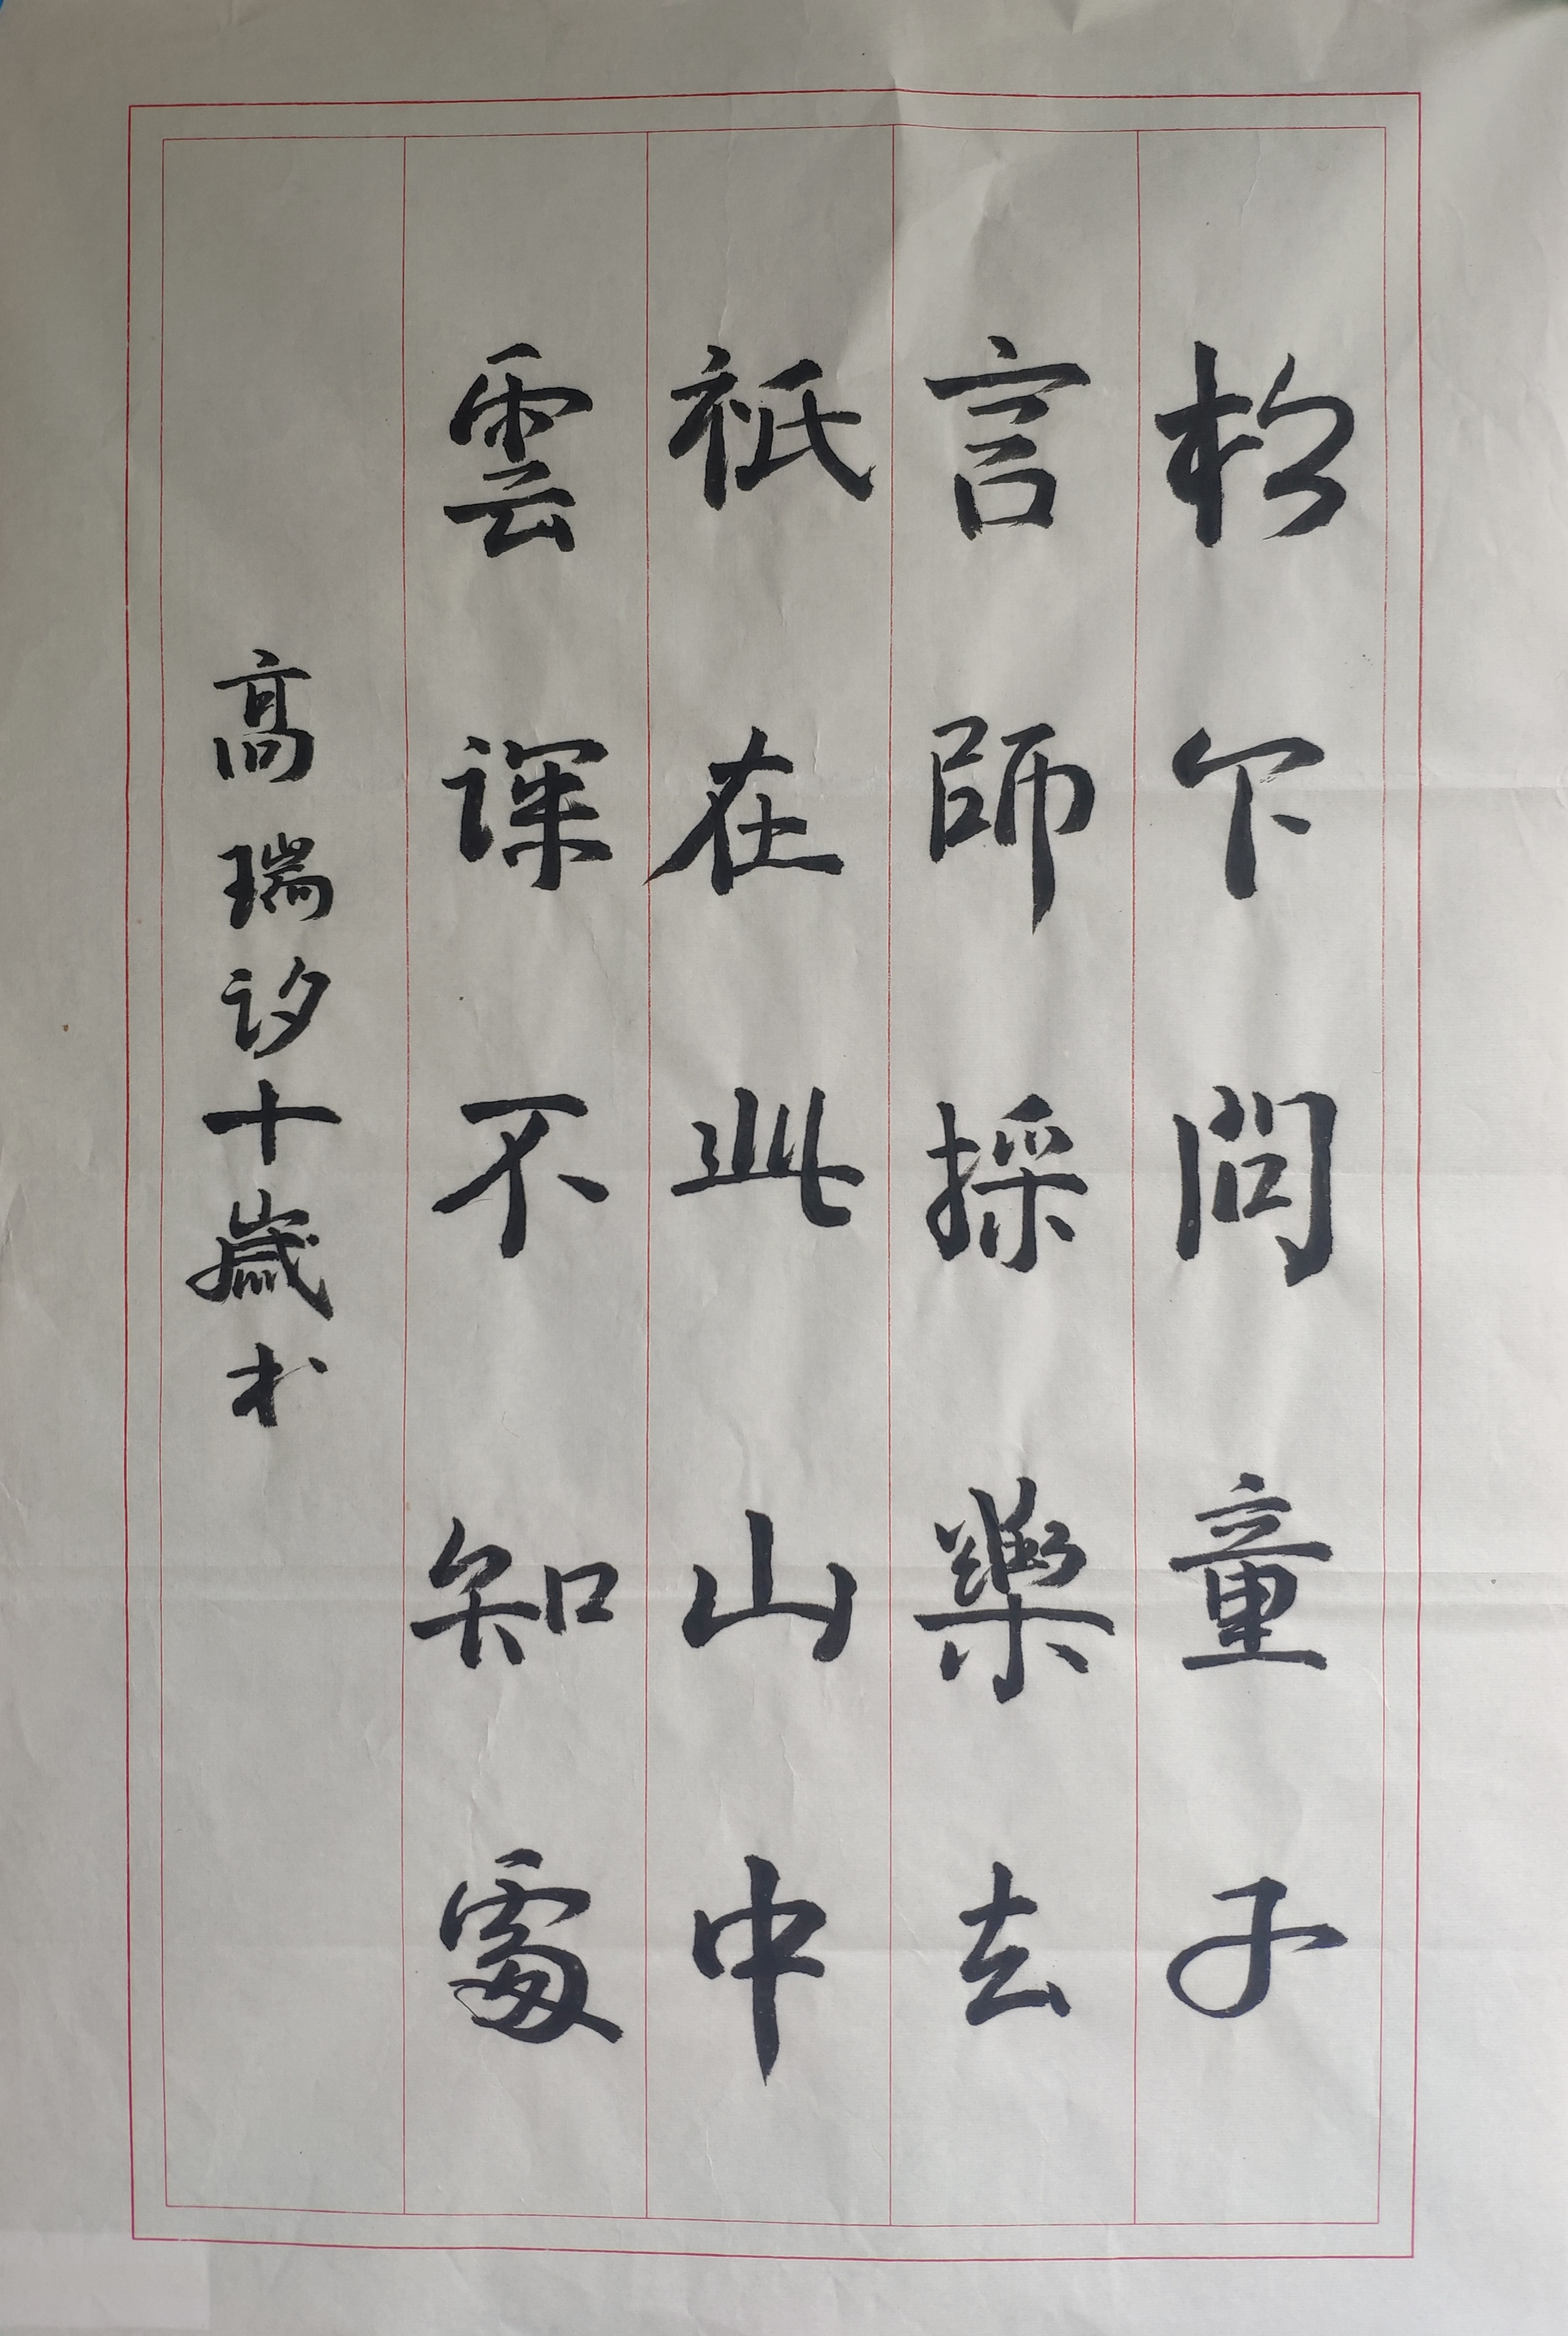 松下問童子
言師採藥去
祇在此山中
雲深不知處
高瑞汐十歲书